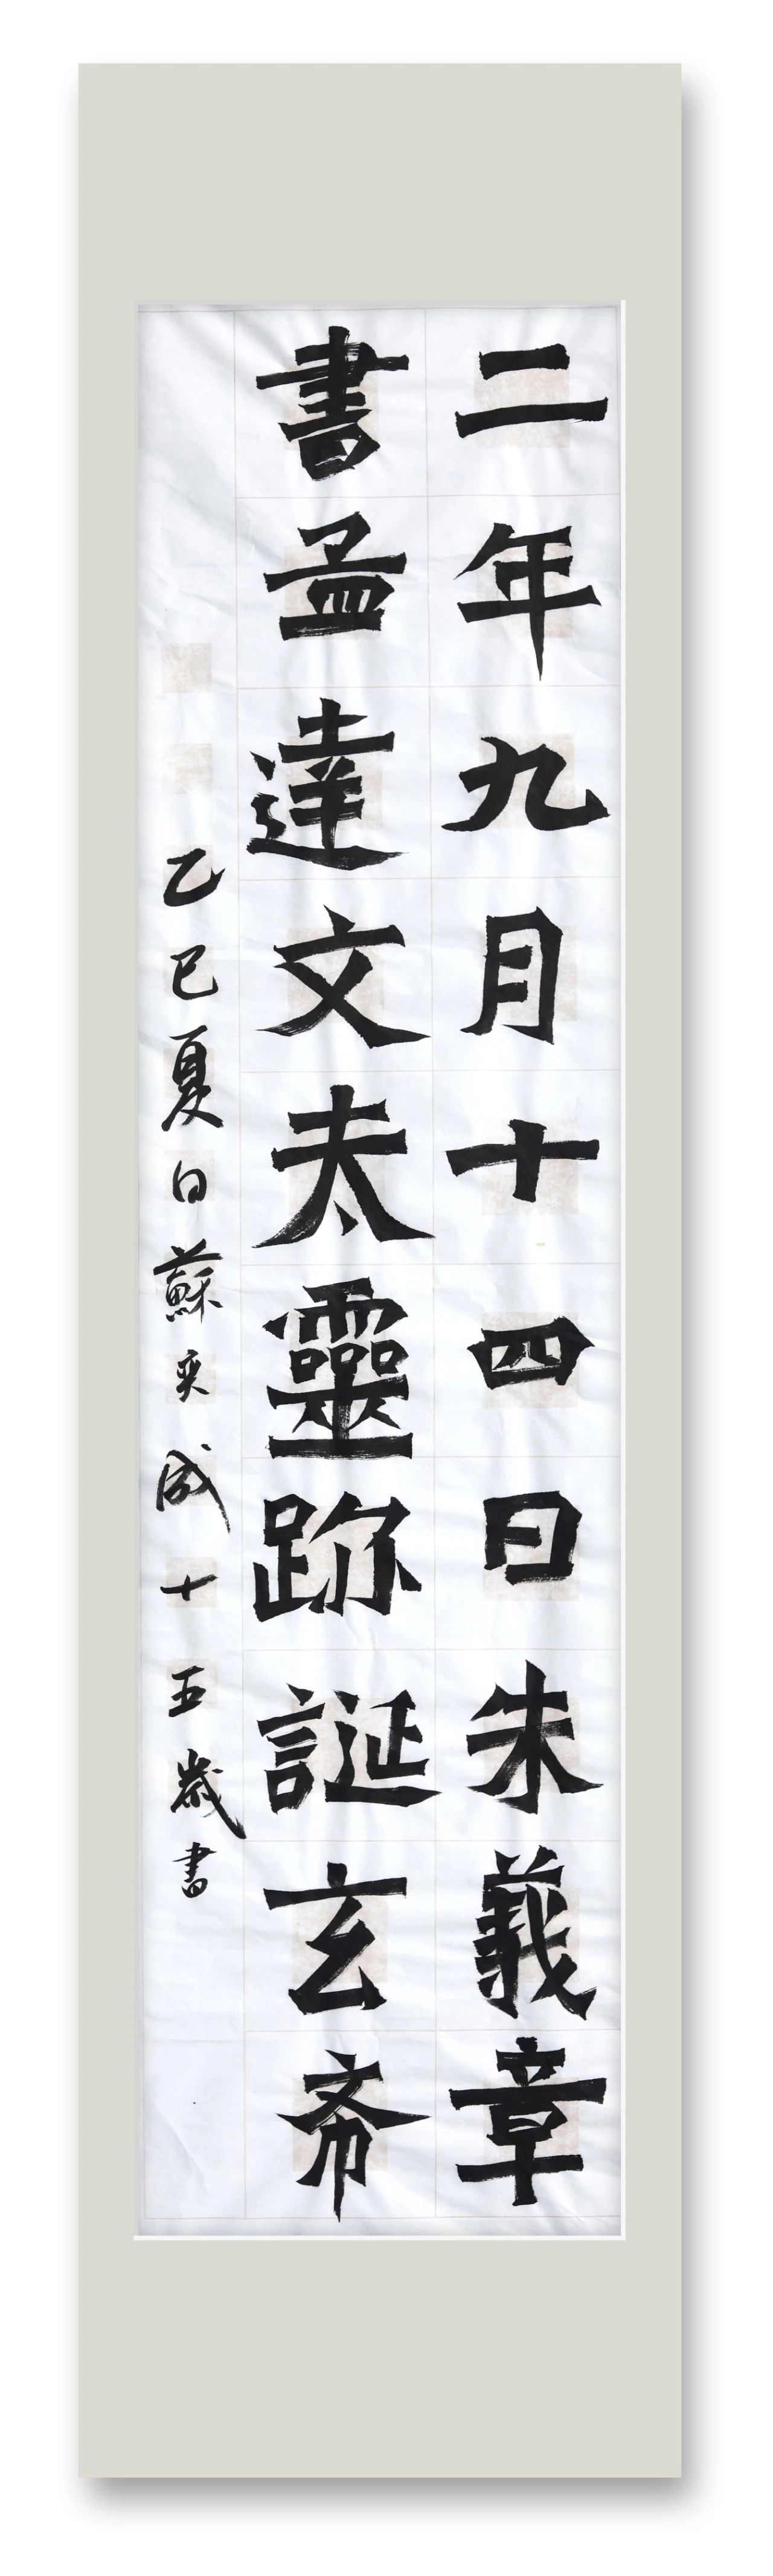 二年九月十四日朱義章
書孟達文太靈跡誕玄斋
乙巳夏日蘇奕成十五歲書